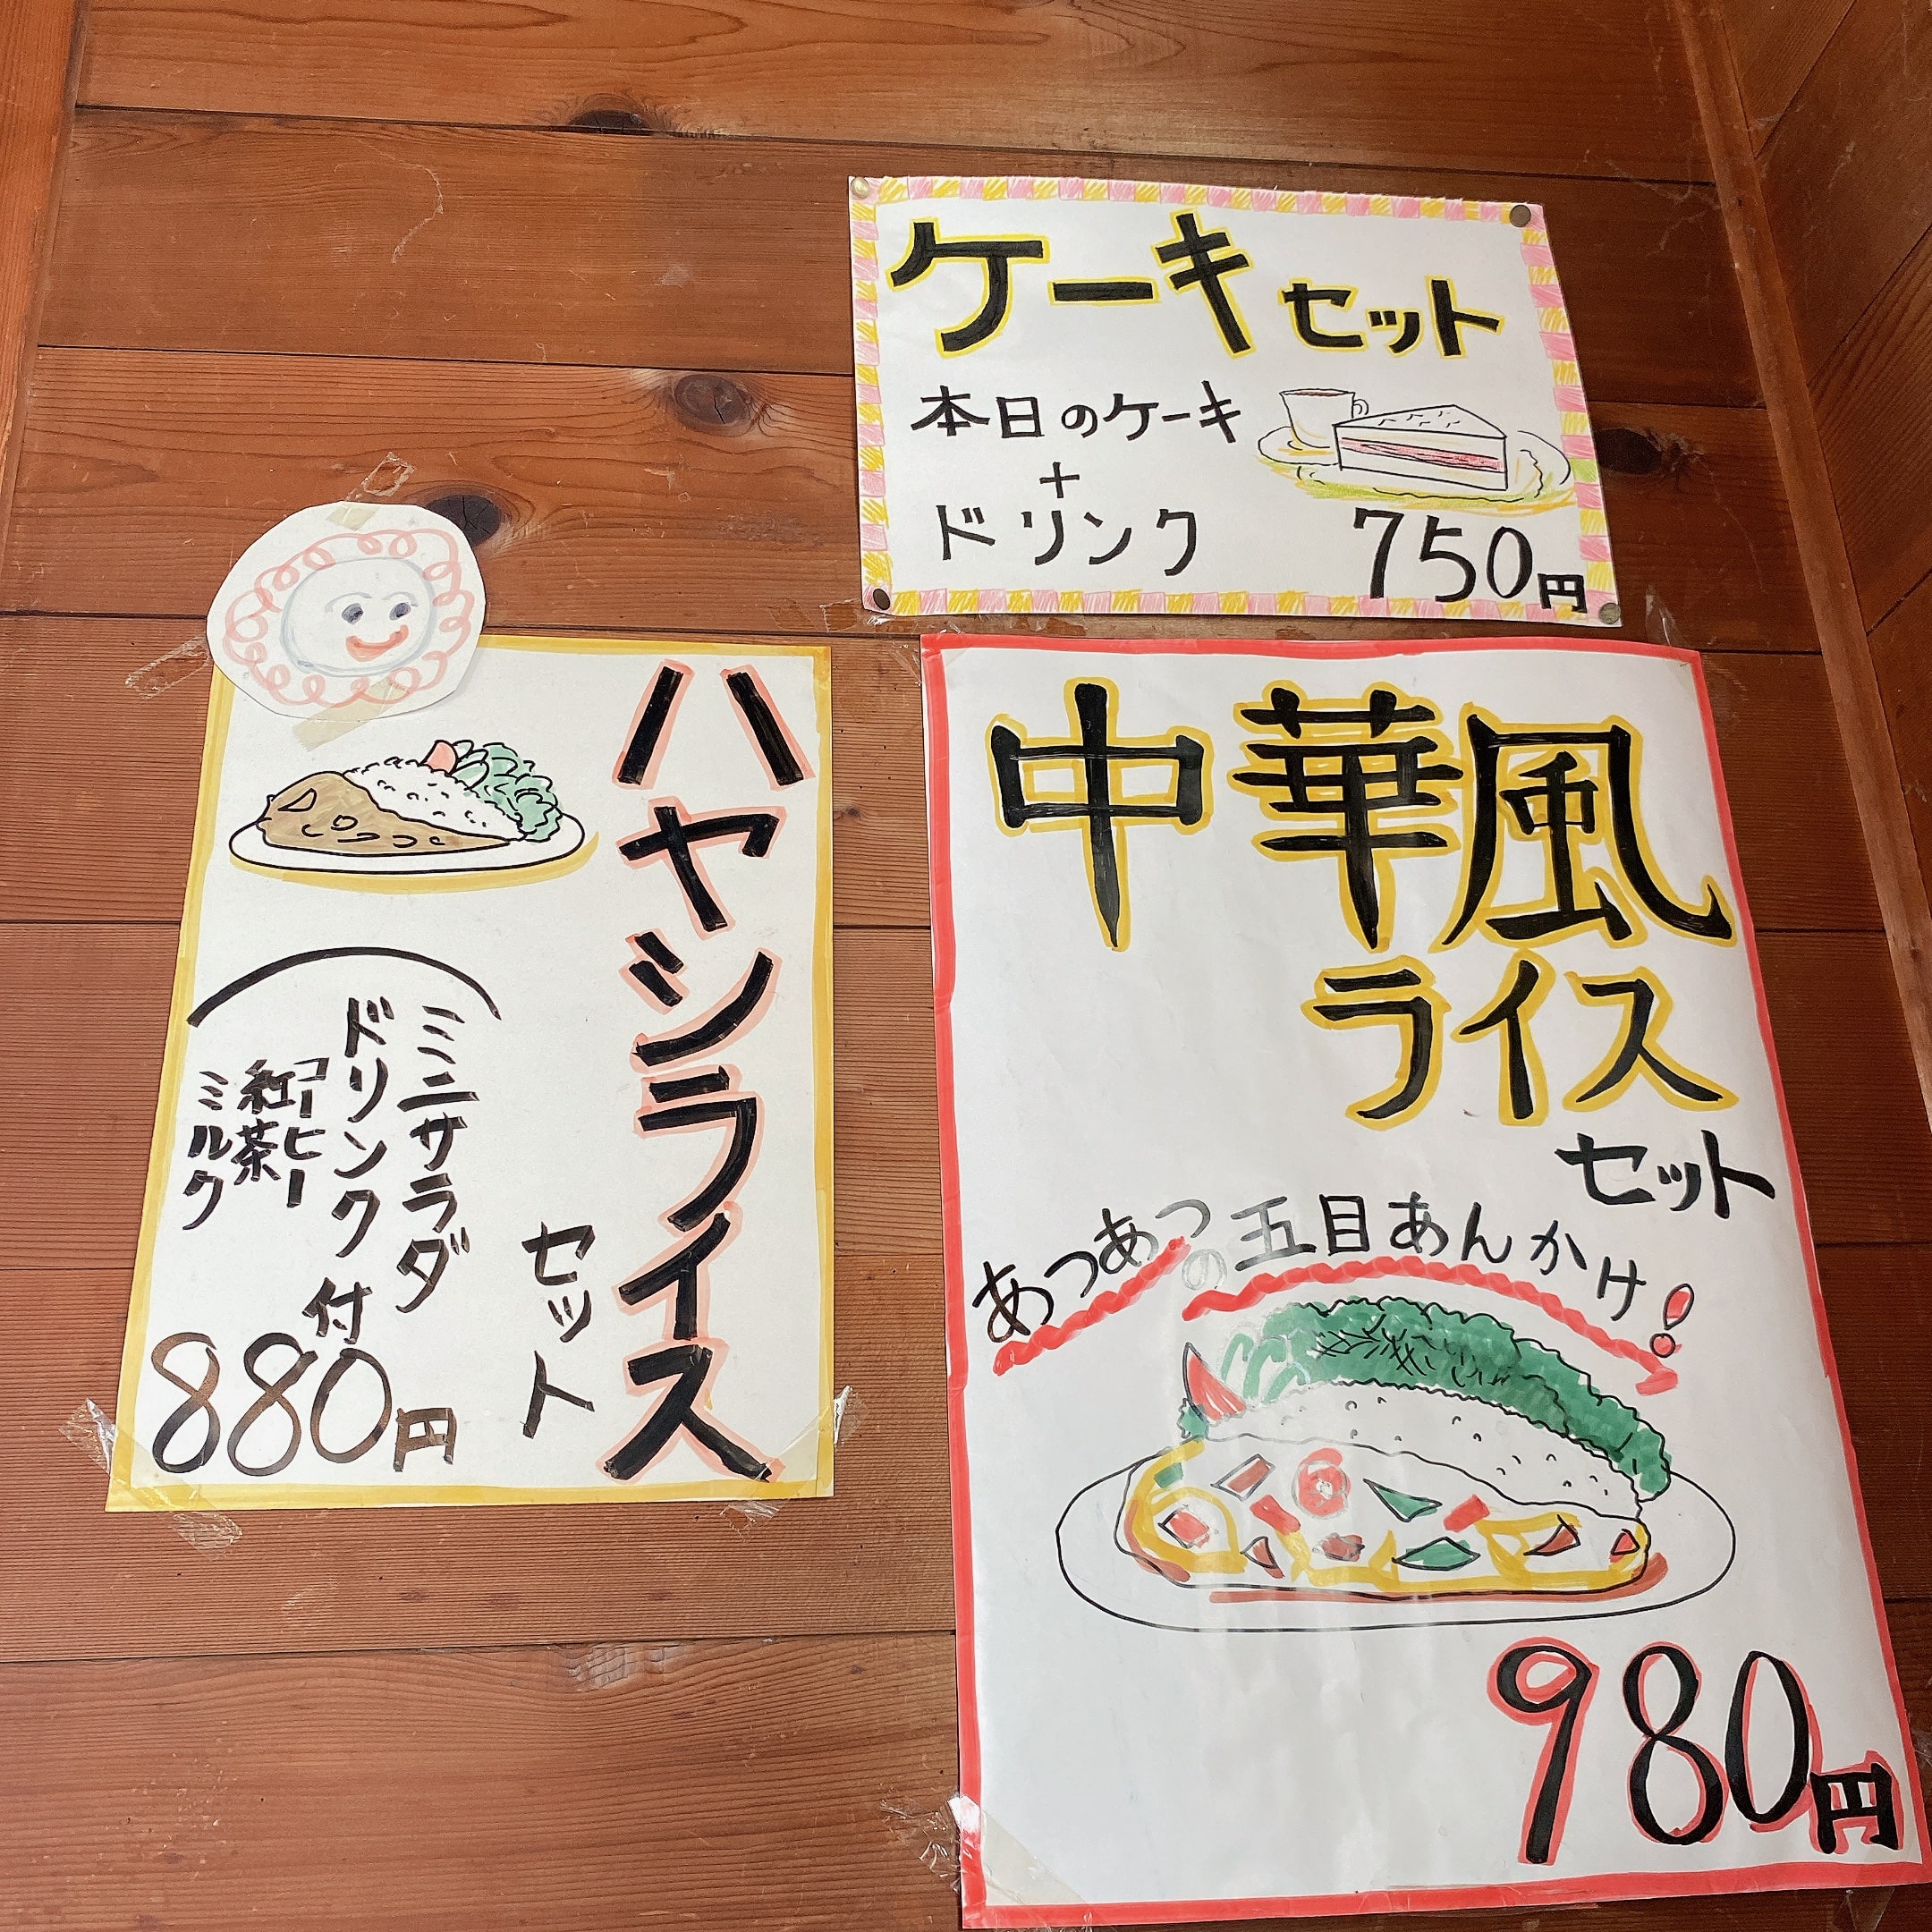 ケーキセット
本日のケーキ
+
ドリンク
750円
ハヤシライス
セット
ミニサラダ
ドリンク付
コーヒー
紅茶
ミルク
880円
中華風
ライス
セット
あつあつの五目あんかけ!
980円